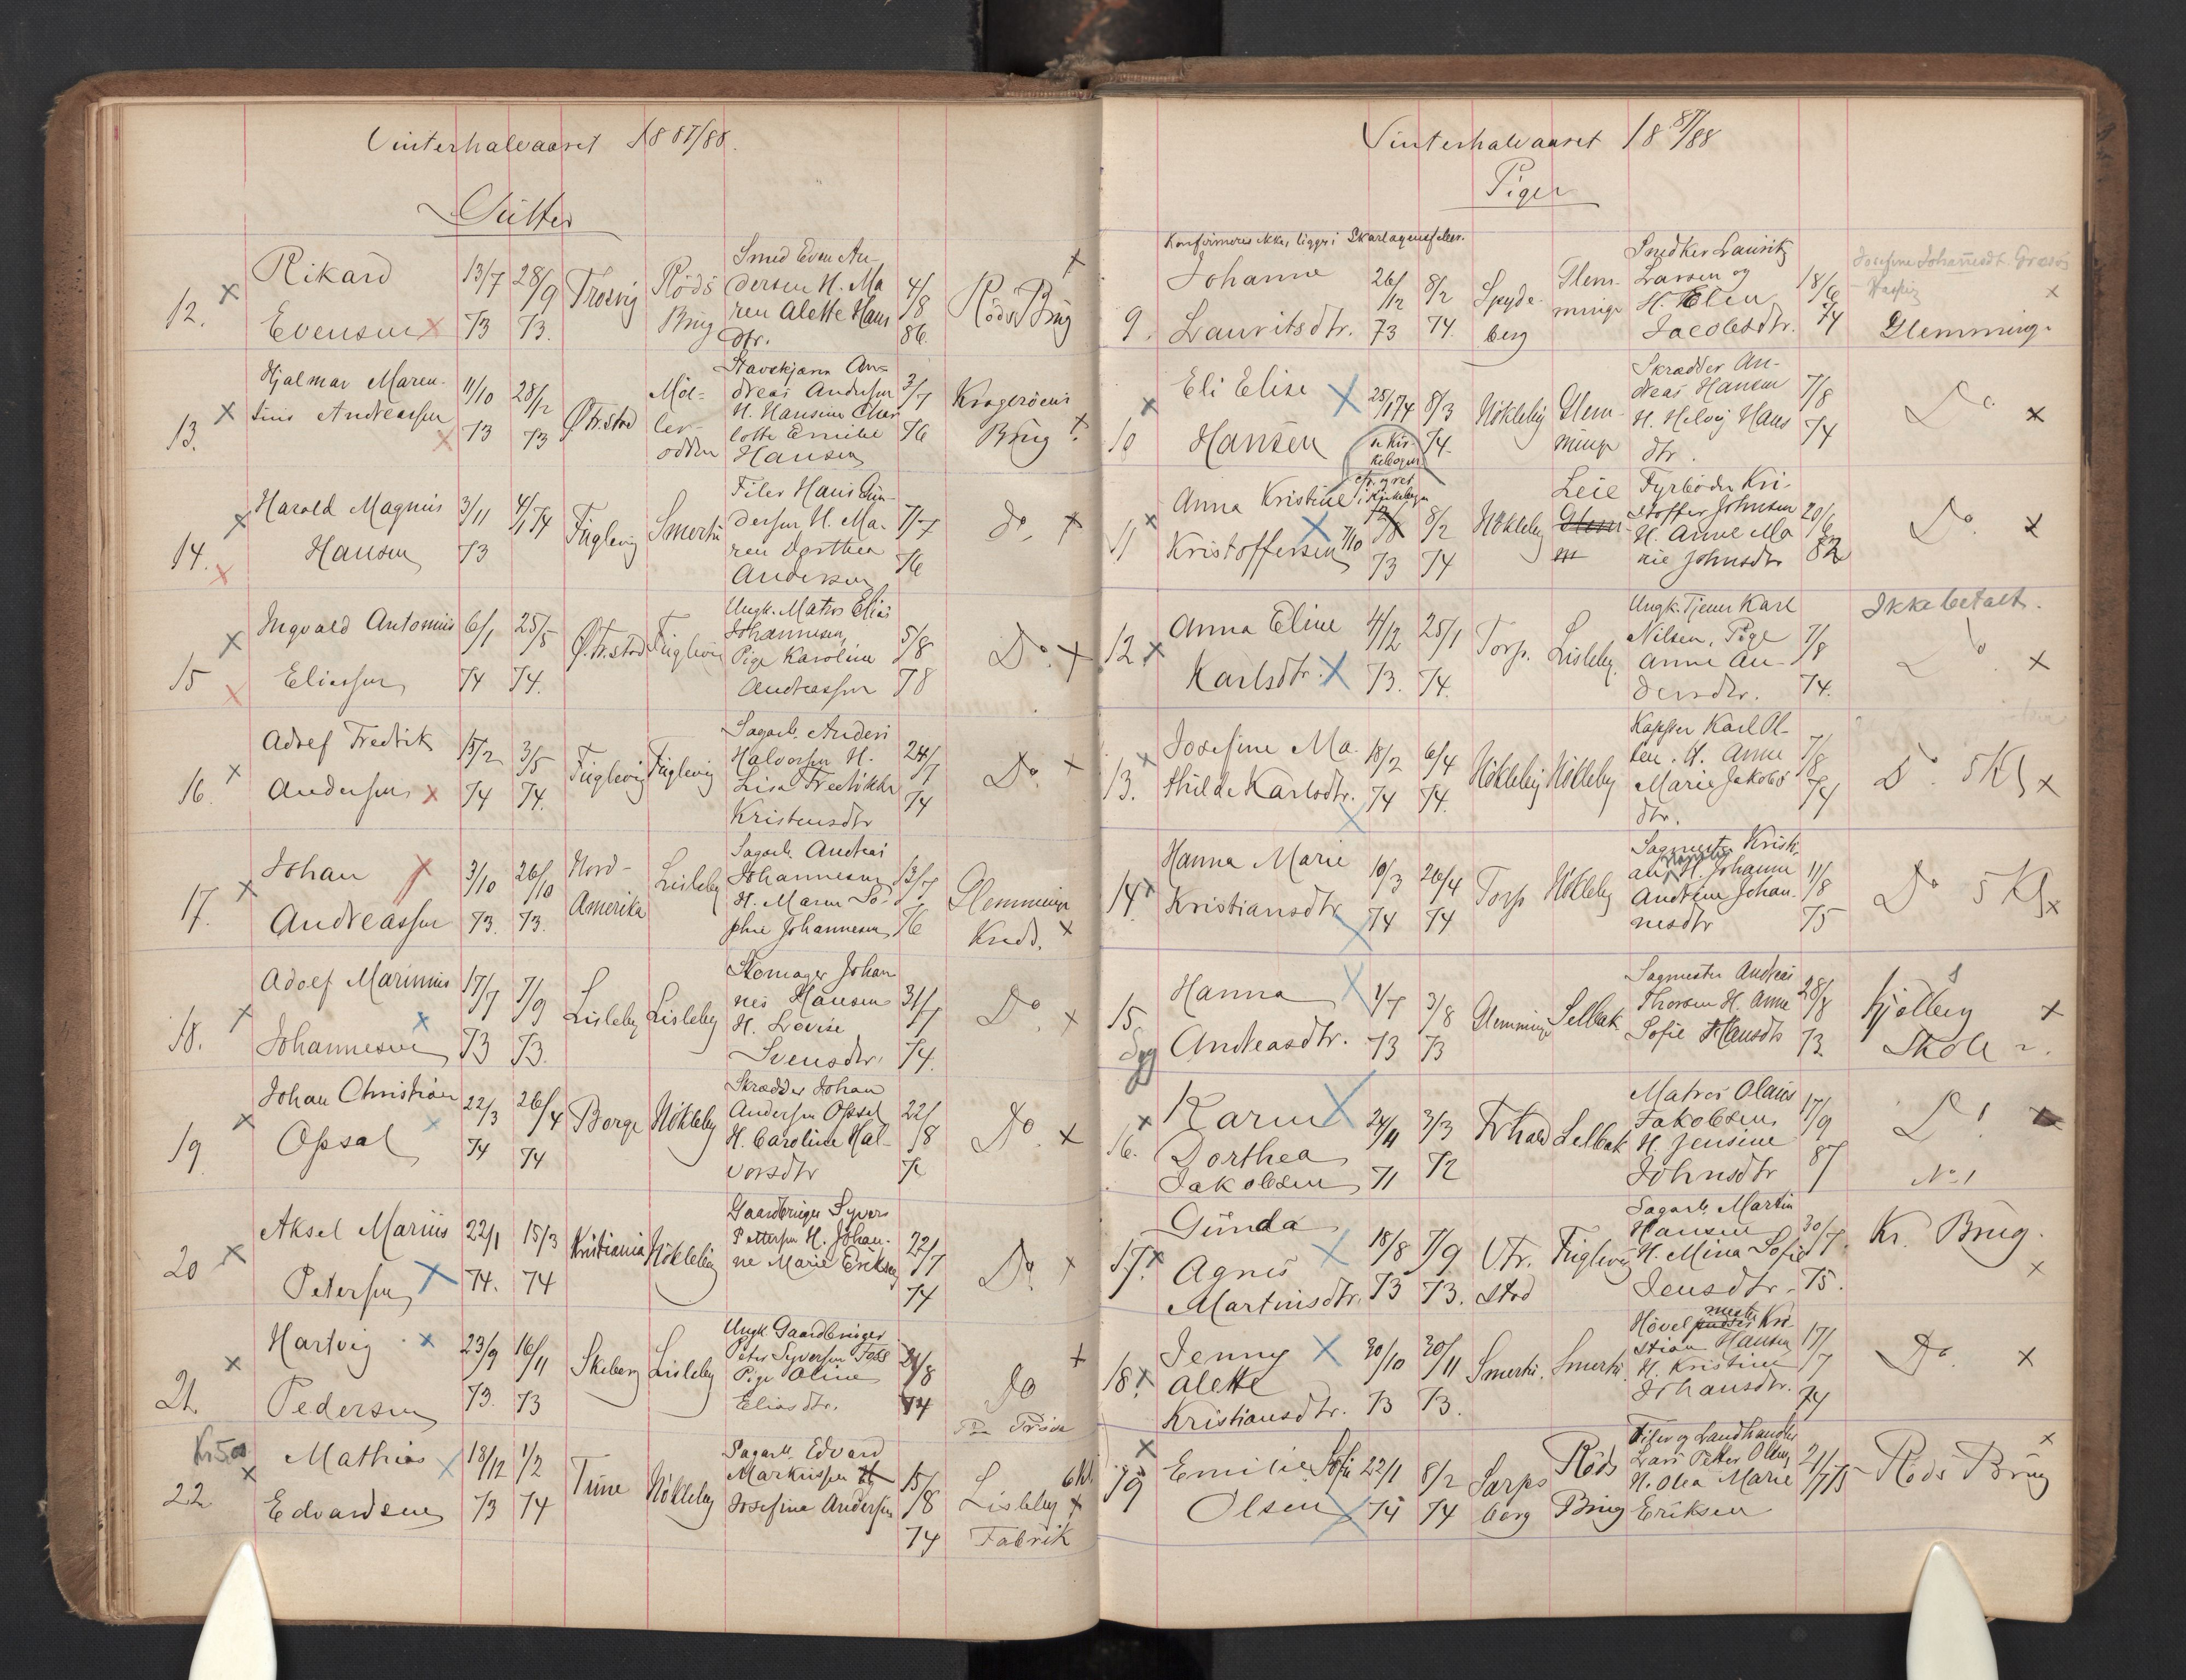 Vinterhalvaaret 1887/88.
Gutter
12. x Rikard Evensen x 13/7 73 28/9 73. Trosvig Röds Brug Smed Even Andersen H. Maren Alette Hansdtr. 4/8 86. Röds Brug x
13. x Hjalmar Marentius Andreassen x 11/10 73 28/12 73 Ø. Fr.stad Mölleroddен Stavskjærer Andreas Andersen H. Hansine Charlotte Emilie Hansen 3/7 76 Kragerøens Brug x
14. x Harald Magnus Hansen x 3/11 73 4/1 74 Fuglevig Smertu Filer Hans Gundersen H. Maren Dorthea Andersen 7/7 76 do. x
15 x Ingvald Antonius Eliassen x 6/1 74 25/5 74. Ø. Fr.stad Fuglevig Ungk. Matros Elias Johannesen, Pige Karoline Andreassen 5/8 78 Do. x
16. x Adolf Fredrik Andersen x 15/2 74 3/5 74. Fuglevig Fuglevig Sagarb. Anders Halvorsen H. Lisa Fredrikke Kristensdtr 24/7 74 Do. x
17. x Johan Andreassen x 3/10 73. 26/10 73. Nord-Amerika Lisleby Sagarb. Andreas Johannesen H. Maren Sophie Johannesen 13/7 76 Glemminge Kreds. x
18. x Adolf Marinius Johannesen x 17/7 73 7/9 73. Lisleby Lisleby Skomager Johannes Hansen H. Lovise Svensdtr. 31/7 74. Do. x
19 x Johan Christian Opsal x 22/3 74 26/4 74 Borge Nökleby Skrædder Johan Andersen Opsal H. Caroline Halvorsdtr 22/8 Do. x
20 x Aksel Marius Petersen x 22/1 74. 15/3 74 Kristiania Nökleby Gaardbruger Syver Pettersen H. Johanne Marie Eriksen 22/7 74 Do. x
21. x Hartvig Pedersen x 23/9 73. 16/11 73 Skeberg Lisleby Ungk. Gaardbruger Peter Syversen Foss Pige Oline Eliasdtr. 21/8 74 Do x
Kr 5.00
22 x Mathias Edvardsen x 18/12 73 1/2 74 Tune Nökleby Sagarb. Edvard Markussen H Josefine Andersen 15/8 74 Lisleby Fabrik x
Vinterhalvaaret 18 87/88
Piger
Konfirmeres ikke, ligger i Skarlagensfeber.
9. Johanne Lauritsdtr. 26/12 73 8/2 74. Spydeberg Glemminge Snedker Laurits Larsen og H. Elen Jacobsdtr. 18/6 74 Josefine Johannesdt. x Glemminge
10 x Eli Elise Hansen x 28/1 74 8/3 74. Nökleby Glemminge Skrædder Andreas Hansen H. Helvig Hansdtr. 7/8 74 Do. x
11 x Anna Kristine Kristoffersen x 7/10 73 8/2 74 Nökleby Leie Fyrböder Kristoffer Johnsen H. Anne Marie Johnsdtr 20/6 82 Do. x
12. x Anna Eline Karlsdtr. x 4/12 73. 25/1 74. Torp. Lisleby. Ungk. Tjener Karl Nilsen, Pige Anne Andersdtr. 7/8 74. Ikke betalt. Do. x
13. x Josefine Mathilde Karlsdtr. x 18/2 74 6/4 74. Nökleby Nökleby Kapster Karl Olsen. H. Anne Marie Jakobsdtr. 7/8 74 Do. 5 Kl x
14 x Hanna Marie Kristiansdtr x 10/3 74 26/4 74 Torp Nökleby Sagmester Kristian H. Johanne Andrine Johannesdtr 11/8 75 Do 5 Kl x
15 Syg Hanna Andreasdtr. x 1/7 73 3/8 73 Glemminge Selbak Sagmester Andreas Thorsen H. Anne Sofie Hansdtr 28/8 73 Kjölberg Skole x
16. x Karen Dorthea Jakobsen x 24/11 71 3/3 72 Fr.hald Selbak Matros Olaus Jakobsen H. Jensine Johnsdtr 17/9 87 Do. x
No 1
17. x Gunda Agnes Martinsdtr. x 18/8 73 7/9 73. V Fr. stad Fuglevig Sagarb. Martin Hansen H. Mina Sofie Jensdtr. 30/7 75. Kr. Brug. x
18. x Jenny Alette Kristiansdtr. x 30/10 73 30/11 73. Smertu. Smertu. Hövelmester Kristian Hansen H. Kristine Johansdtr. 17/7 74 Do. x
19 x Emilie Sofie Olsen x 22/1 74 8/2 74 Sarpsborg Röds Brug Filer og Landhandler Lars Petter Olsen H. Olea Marie Eriksen 21/7 75 Röds Brug x